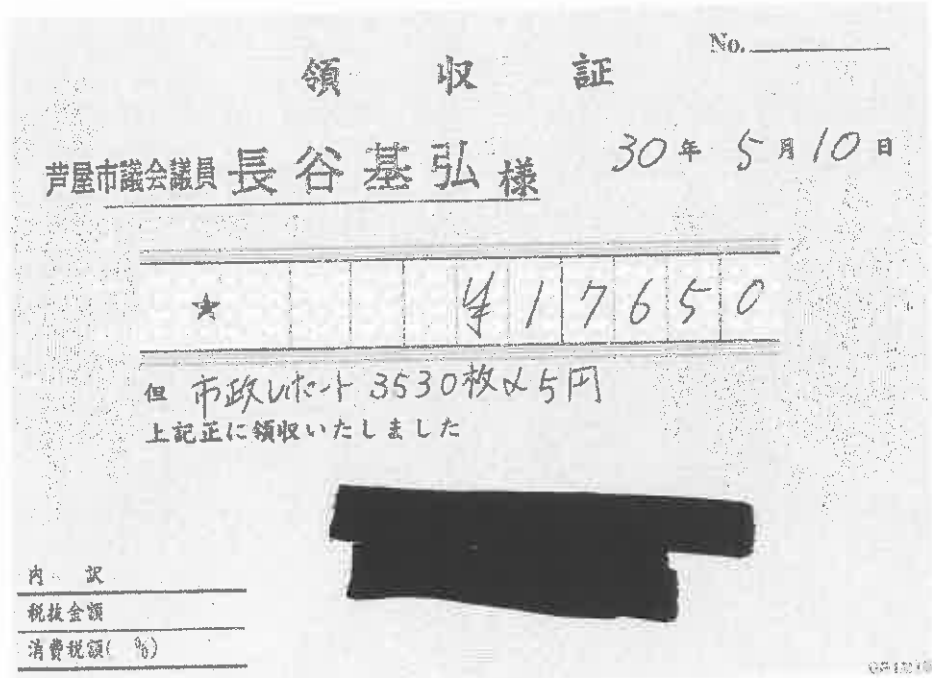 No.
領収証
芦屋市議会議員 長谷基弘様
30年5月10日
★ ¥17650
但 市政レポート 3530枚×5円
上記正に領収いたしました
内訳
税抜金額
消費税額( %)